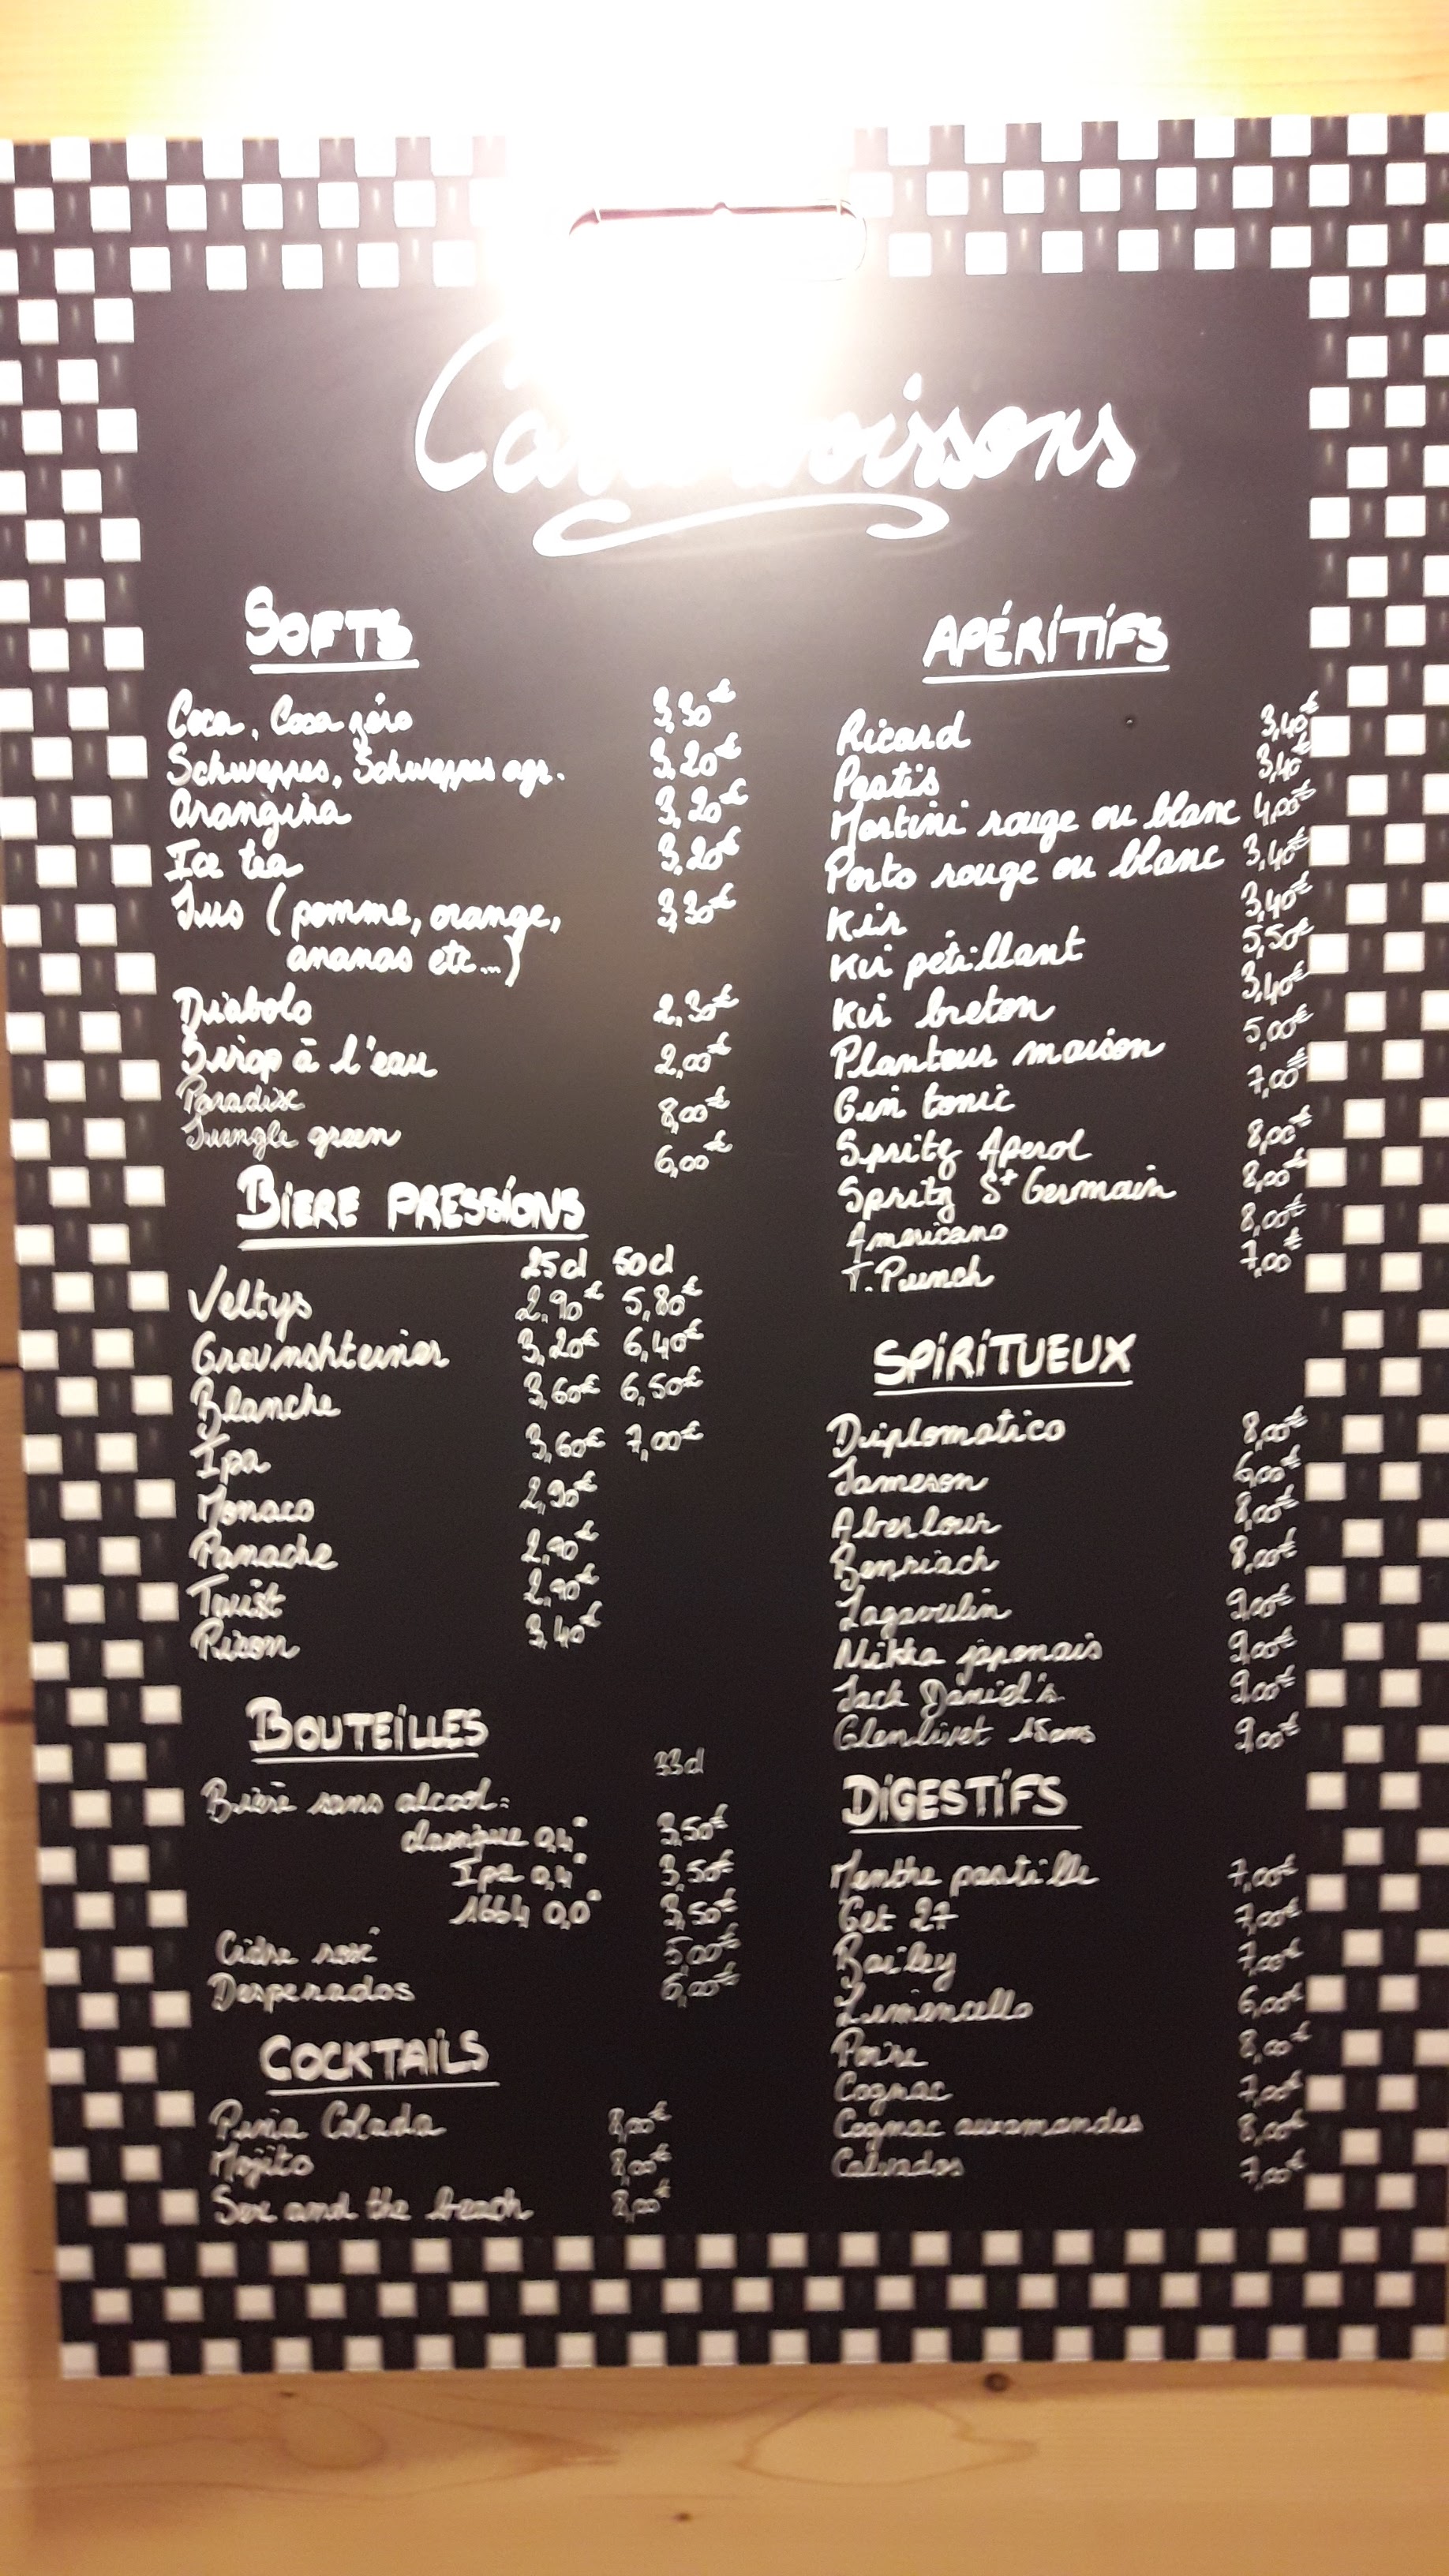 boissons
SOFTS
Coca, Coca zéro 3,30€
Schweppes, Schweppes agr. 3,20€
Orangina 3,20€
Ice tea 3,20€
Jus (pomme, orange, 3,30€
ananas etc...)
Diabolo 2,30€
Sirop à l'eau 2,00€
Paradise 8,00€
Jungle green 6,00€
BIERE PRESSIONS
25cl 50cl
Veltys 2,90€ 5,80€
Grevnshteiner 3,20€ 6,40€
Blanche 3,60€ 6,50€
Ipa 3,60€ 7,00€
Monaco 2,90€
Panache 2,90€
Twist 2,90€
Picon 3,40€
BOUTEILLES
33cl
Bière sans alcool:
classique 0,4° 3,50€
Ipa 0,4° 3,50€
1664 0,0° 3,50€
Cidre rosé 5,00€
Desperados 6,00€
COCKTAILS
Piña Colada 8,00€
Mojito 8,00€
Sex and the beach 8,00€
APÉRITIFS
Ricard 3,40€
Pastis 3,40€
Martini rouge ou blanc 4,00€
Porto rouge ou blanc 3,40€
Kir 3,40€
Kir pétillant 5,50€
Kir breton 3,40€
Planteur maison 5,00€
Gin tonic 7,00€
Spritz Aperol 8,00€
Spritz St Germain 8,00€
Americano 8,00€
T.Punch 7,00€
SPIRITUEUX
Diplomatico 8,00€
Jameson 6,00€
Aberlour 8,00€
Benriach 8,00€
Lagavulin 9,00€
Nikka japonais 9,00€
Jack Daniel's 9,00€
Glenlivet 15ans 9,00€
DIGESTIFS
Menthe pastille 7,00€
Get 27 7,00€
Bailey 7,00€
Limoncello 6,00€
Poire 8,00€
Cognac 7,00€
Cognac auxamandes 8,00€
Calvados 7,00€